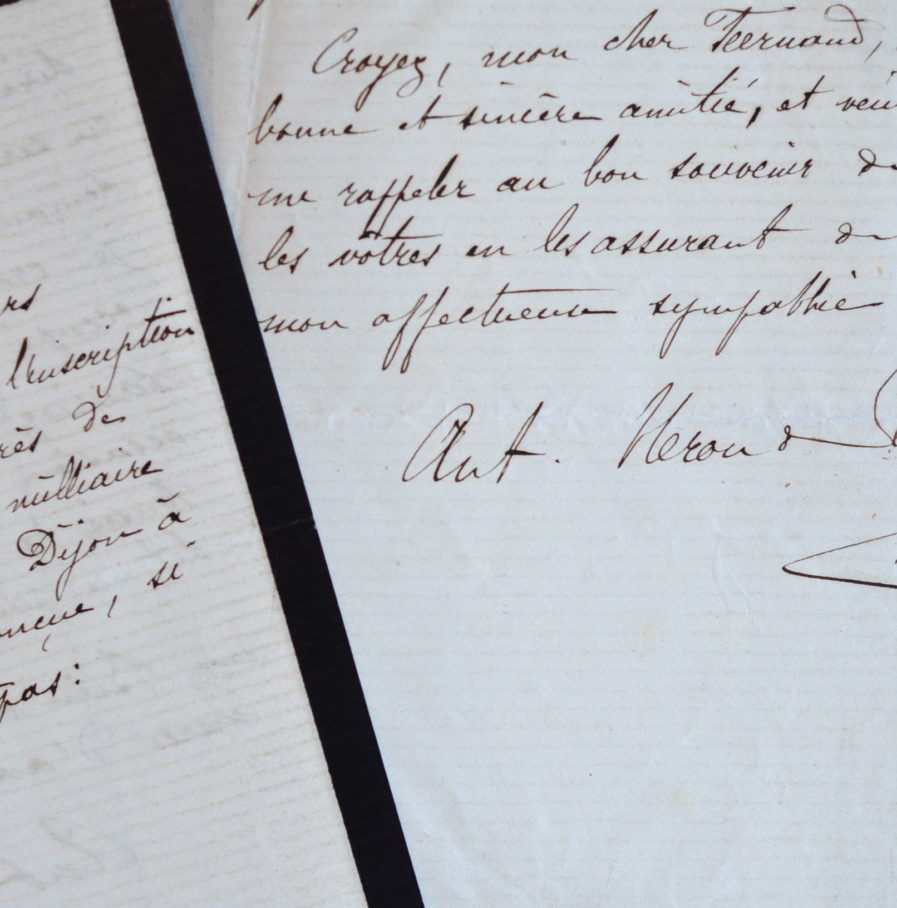 l'inscription
de
milliaire
Dijon à
, si
pas:
Croyez, mon cher Fernand,
bonne et sincère amitié, et
me rappeler au bon souvenir de
les vôtres en les assurant de
mon affectueuse sympathie
Ant. Heron de